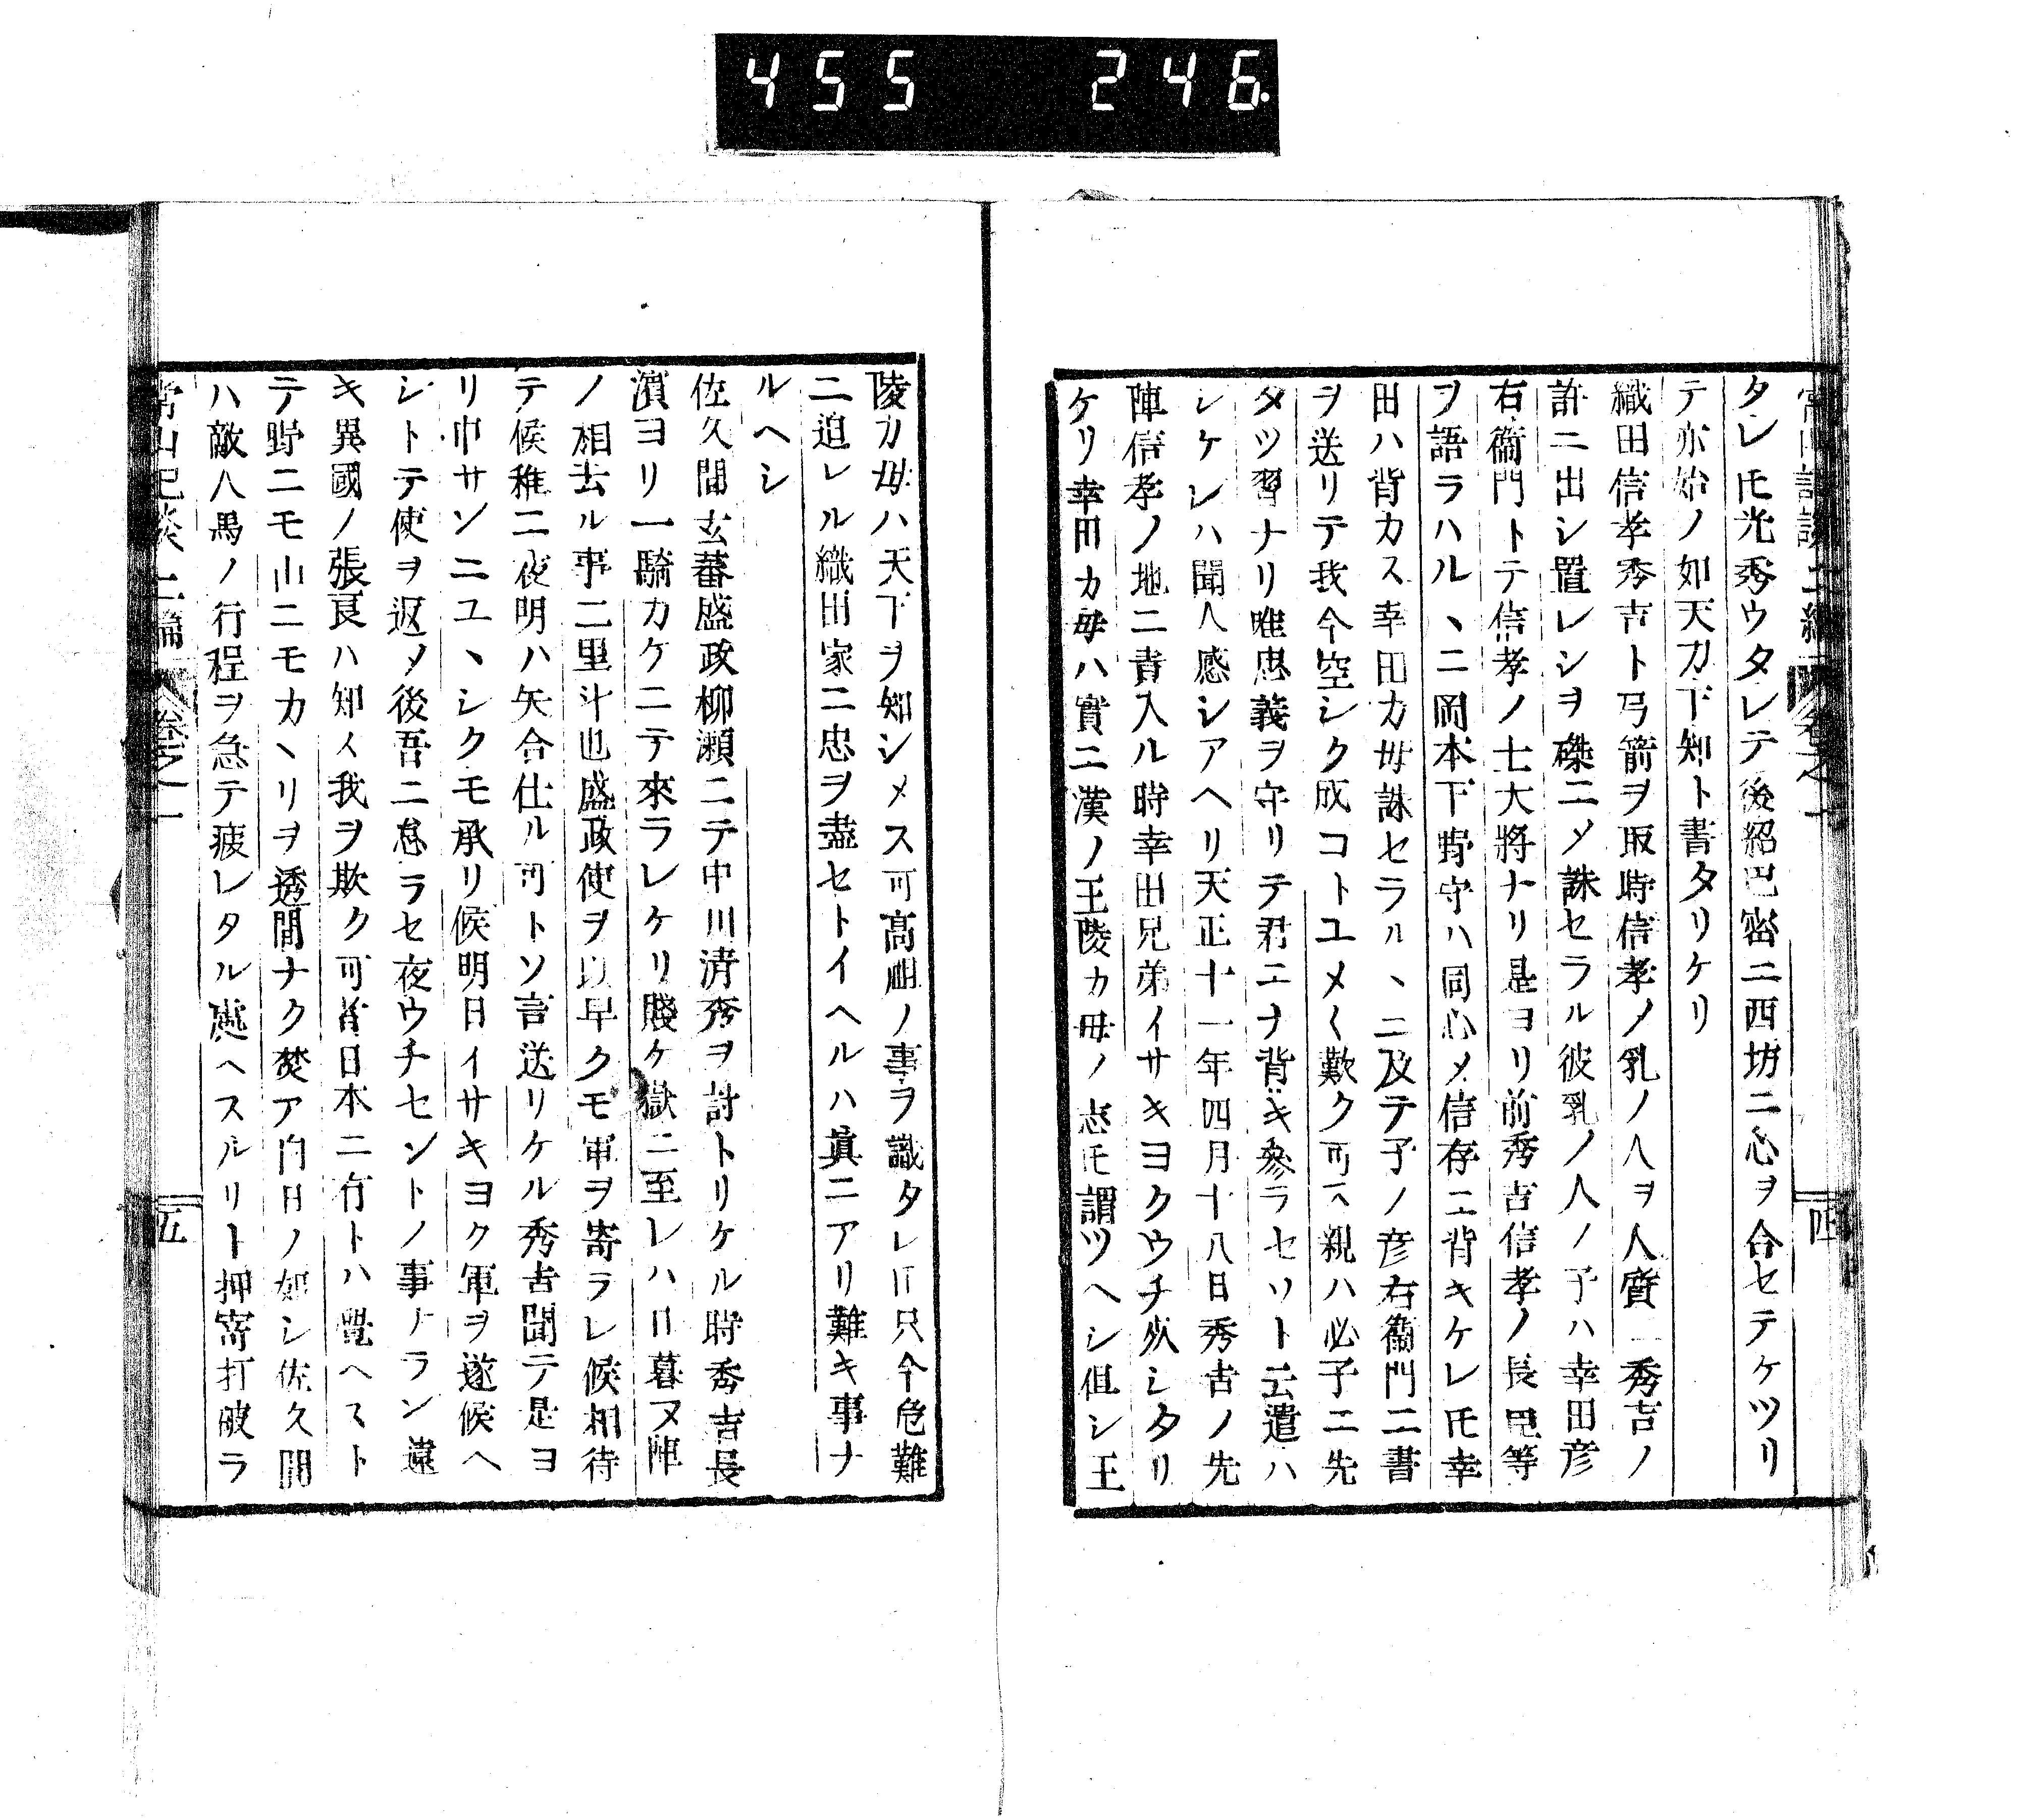 455 246.
タレ𪜈光秀ウタレテ後紹巴密ニ西坊ニ心ヲ合セテケツリ
テ亦始ノ如天カ下知ト書タリケリ
織田信孝秀吉ト弓箭ヲ取時信孝ノ乳ノ人ヲ人質ニ秀吉ノ
許ニ出シ置レシヲ磔ニメ誅セラル彼乳ノ人ノ子ハ幸田彦
右衞門トテ信孝ノ士大將ナリ是ヨリ前秀吉信孝ノ長臣等
ヲ語ラハルヽニ岡本下野守ハ同心メ信孝ニ背キケレ𪜈幸
田ハ背カス幸田カ母誅セラルヽニ及テ子ノ彦右衞門ニ書
ヲ送リテ我今空シク成コトユメ〱歎ク可ラス親ハ必子ニ先
タツ習ナリ唯忠義ヲ守リテ君ニナ背キ參ラセソト云遣ハ
シケレハ聞人感シアヘリ天正十一年四月十八日秀吉ノ先
陣信孝ノ地ニ責入ル時幸田兄弟イサキヨクウチ死シタリ
ケリ幸田カ母ハ實ニ漢ノ王陵カ母ノ志𪜈謂ツヘシ但シ王
四
陵カ母ハ天下ヲ知シメス可高祖ノ事ヲ識タレ𪜈只今危難
ニ迫レル織田家ニ忠ヲ盡セトイヘルハ眞ニアリ難キ事ナ
ルヘシ
佐久間玄蕃盛政柳瀬ニテ中川清秀ヲ討トリケル時秀吉長
濱ヨリ一騎カケニテ來ラレケリ賤ケ嶽ニ至レハ日暮ヌ陣
ノ相去ル事二里斗也盛政使ヲ以早クモ軍ヲ寄ラレ候相待
テ候稚ニ夜明ハ矢合仕ル可トソ言送リケル秀吉聞テ是ヨ
リ申サンニユヽシクモ承リ候明日イサキヨク軍ヲ遂候ヘ
シトテ使ヲ返メ後吾ニ怠ラセ夜ウチセントノ事ナラン遠
キ異國ノ張良ハ知ス我ヲ欺ク可者日本ニ有トハ覺ヘスト
テ野ニモ山ニモカヽリヲ透間ナク焚ア白日ノ如シ佐久間
ハ敵人馬ノ行程ヲ急テ疲レタル處ヘスルリト押寄打破ラ
常山記談 二編 卷之一
五